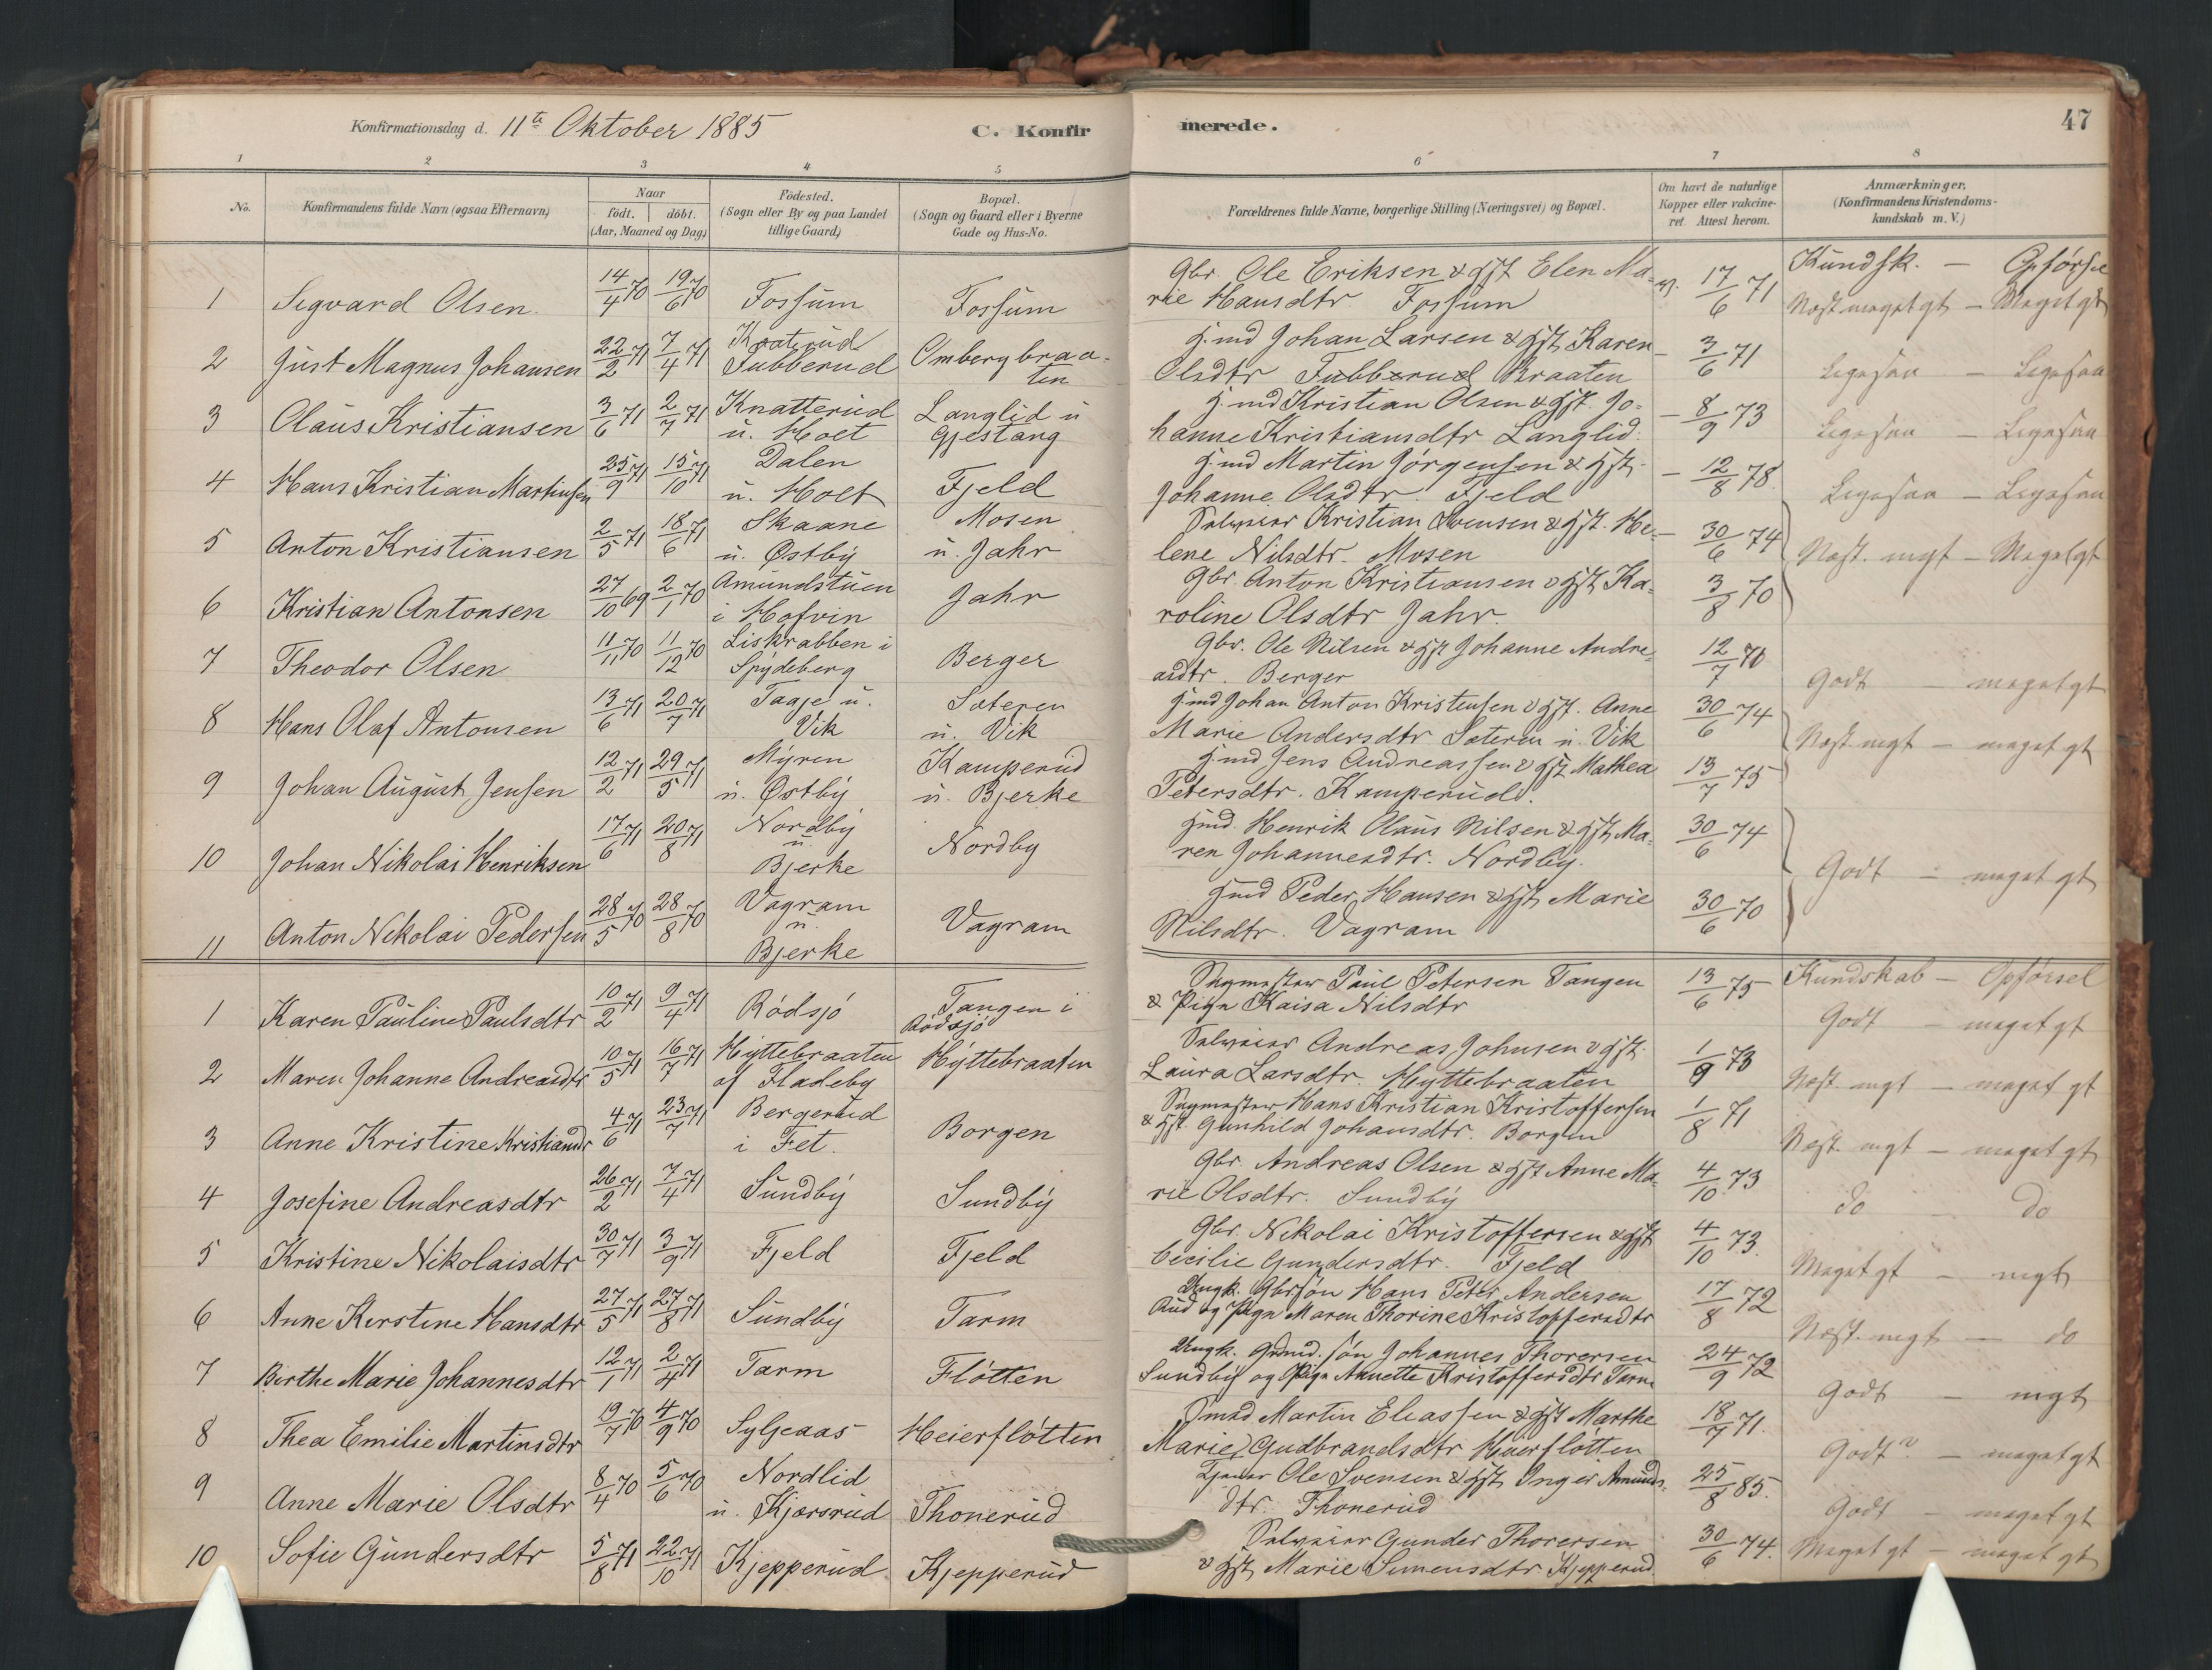 Konfirmationsdag d. 11te Oktober 1885 C. Konfirmerede. 47
1 2 3 4 5 6 7 8
No. Konfirmandens fulde Navn (ogsaa Efternavn) Naar født. døbt. (Aar, Maaned og Dag) Fødested. (Sogn eller By og paa Landet tillige Gaard) Bopæl. (Sogn og Gaard eller i Byerne Gade og Hus-No. Forældrenes fulde Navne, borgerlige Stilling (Næringsvei) og Bopæl. Om havt de naturlige Kopper eller vakcineret. Attest herom. Anmærkninger, (Konfirmandens Kristendomskundskab m. V.)
Kundsk. — Opførsel
1 Sigvard Olsen 14/4 70 19/6 70 Fossum Fossum Gbr. Ole Eriksen & Hst Elen Marie Hansdtr Fossum 17/6 71 Nest meget gt — Meget gt
2 Just Magnus Johansen 22/2 71 7/4 71 Knaterud Fubberud Ombergbraaten J.md Johan Larsen & Hst Karen Olsdtr Fubberud Braaten — 3/6 71 Ligesaa — Ligesaa
3 Olaus Kristiansen 3/6 71 2/7 71 Knatterud u. Holt Langlid u Gjestang J.md Kristian Olsen & Hst. Johanne Kristiansdtr Langlid. — 8/9 73 Ligesaa — Ligesaa
4 Hans Kristian Martinsen 25/9 71 15/10 71 Dalen u. Holt Fjeld J.md Martin Jørgensen & Hst. Johanne Olsdtr. Fjeld — 12/8 78 Ligesaa — Ligesaa
5 Anton Kristiansen 2/5 71 18/6 71 Skaane u. Østby Mosen u. Jahr Selveier Kristian Svensen & Hst. Helene Nilsdtr. Mosen — 30/6 74 Nest. mgt — Meget gt
6 Kristian Antonsen 27/10 69 2/1 70 Amundstuen i Hofvin Jahr Gbr. Anton Kristiansen & Hst Karoline Olsdtr Jahr. 3/8 70
7 Theodor Olsen 11/11 70 11/12 70 Liskrabben i Spydeberg Berger Gbr. Ole Nilsen & Hst Johanne Andreasdtr. Berger 12/7 76 Godt — meget gt
8 Hans Olaf Antonsen 13/6 71 20/7 71 Taaje u. Vik Sæteren u. Vik J.md Johan Anton Kristensen & Hst. Anne Marie Andersdtr Sæteren u. Vik 30/6 74 Nest mgt — meget gt
9 Johan August Jensen 12/2 71 29/5 71 Myren u. Østby Kamperud u. Bjerke J.md Jens Andreassen & Hst Mathea Petersdtr. Kamperud. 13/7 75
10 Johan Nikolai Henriksen 17/6 71 20/8 71 Nordby u. Bjerke Nordby Jmd. Henrik Olaus Nilsen & Hst Maren Johannesdtr. Nordby. 30/6 74 Godt — meget gt
11 Anton Nikolai Pedersen 28/5 70 28/8 70 Vagram u. Bjerke Vagram Jmd Peder Hansen & Hst Marie Nilsdtr. Vagram 30/6 70
Kundskab — Opførsel
1 Karen Pauline Paulsdtr 10/2 71 9/4 71 Rødsjø Tangen i Rødsjø Sagmester Paul Petersen Tangen & Pige Kaisa Nilsdtr 13/6 75 Godt — meget gt
2 Maren Johanne Andreasdtr 10/5 71 16/7 71 Hyttebraaten af Fladeby Hyttebraaten Selveier Andreas Johnsen & Hst. Laura Larsdtr. Hyttebraaten 1/9 73 Nest mgt — meget gt
3 Anne Kristine Kristiansdr 4/6 71 23/7 71 Bergerud i Fet. Borgen Sagmester Hans Kristian Kristoffersen & Hst. Gunhild Johansdtr. Borgen 1/8 71 Nest. mgt — meget gt
4 Josefine Andreasdtr 26/2 71 7/4 71 Sundby Sundby Gbr. Andreas Olsen & Hst Anne Marie Olsdtr. Sundby 4/10 73 do — do
5 Kristine Nikolaisdtr 30/7 71 3/9 71 Fjeld Fjeld Gbr. Nikolai Kristoffersen & Hst Cecilie Gundersdtr. Fjeld 4/10 73. Meget gt — mgt
6 Anne Kirstine Hansdtr 27/5 71 27/8 71 Sundby Tarm Ungk. Gbrsøn Hans Peter Andersen Aud og Pige Maren Thorine Kristoffersdtr 17/8 72 Nest. mgt — do
7 Berthe Marie Johannesdtr 12/1 71 2/4 71 Tarm Fløtten Ungk. Grmd. søn Johannes Thorersen Sundby og Pige Annette Kristoffersdtr Tarm 24/9 72 Godt — mgt
8 Thea Emilie Martinsdtr 19/7 70 4/9 70 Syljeaas Heierfløtten Smed Martin Eliassen & Hst Marthe Marie Gudbrandsdtr Heierfløtten 18/7 71. Godt — meget gt
9 Anne Marie Olsdtr 8/4 70 5/6 70 Nordlid u. Kjærsrud Thonerud Tjener Ole Svensen & Hst Inger Amundsdtr. Thonerud 25/8 85. Godt — meget gt
10 Sofie Gundersdtr 5/8 71 22/10 71 Kjepperud Kjepperud Selveier Gunder Thorersen & Hst Marie Simensdtr Kjepperud. 30/6 74. Meget gt — meget gt